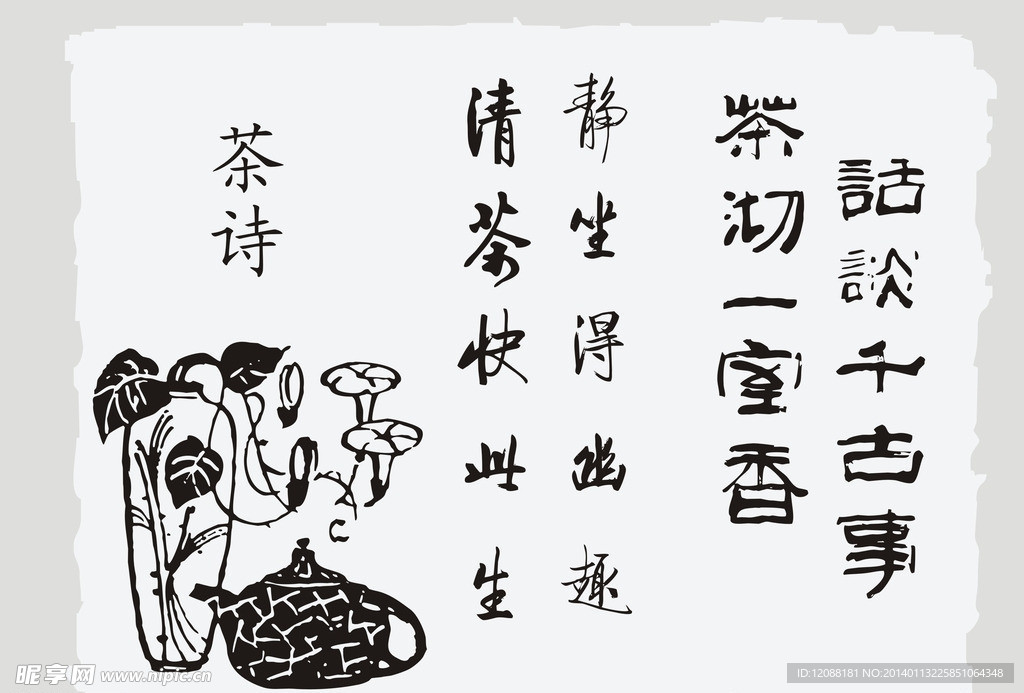 話談千古事
茶沏一室香
静坐得幽趣
清茶快此生
茶诗
昵享网 www.nipic.cn
ID:12088181 NO:20140113225851064348